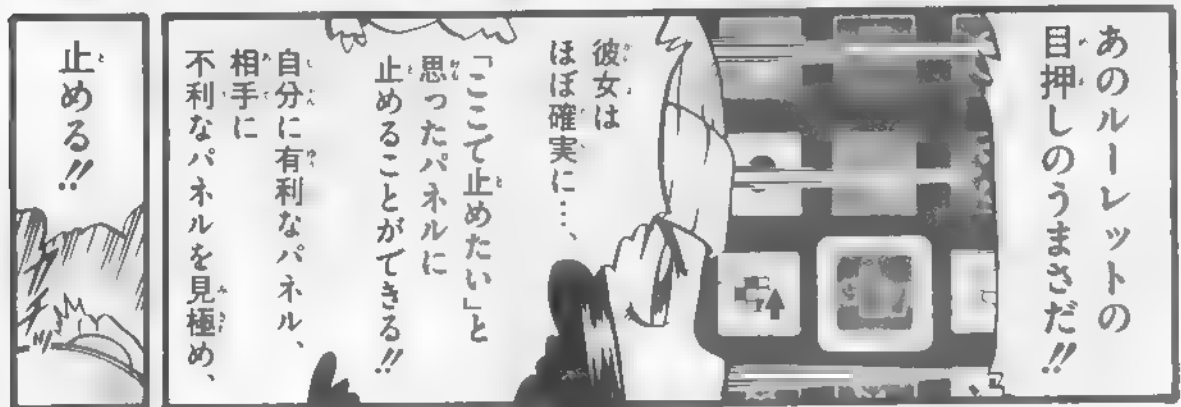 あのルーレットの
目押しのうまさだ!!
彼女は
ほぼ確実に…、
「ここで止めたい」と
思ったパネルに
止めることができる!!
自分に有利なパネル、
相手に
不利なパネルを見極め、
止める!!